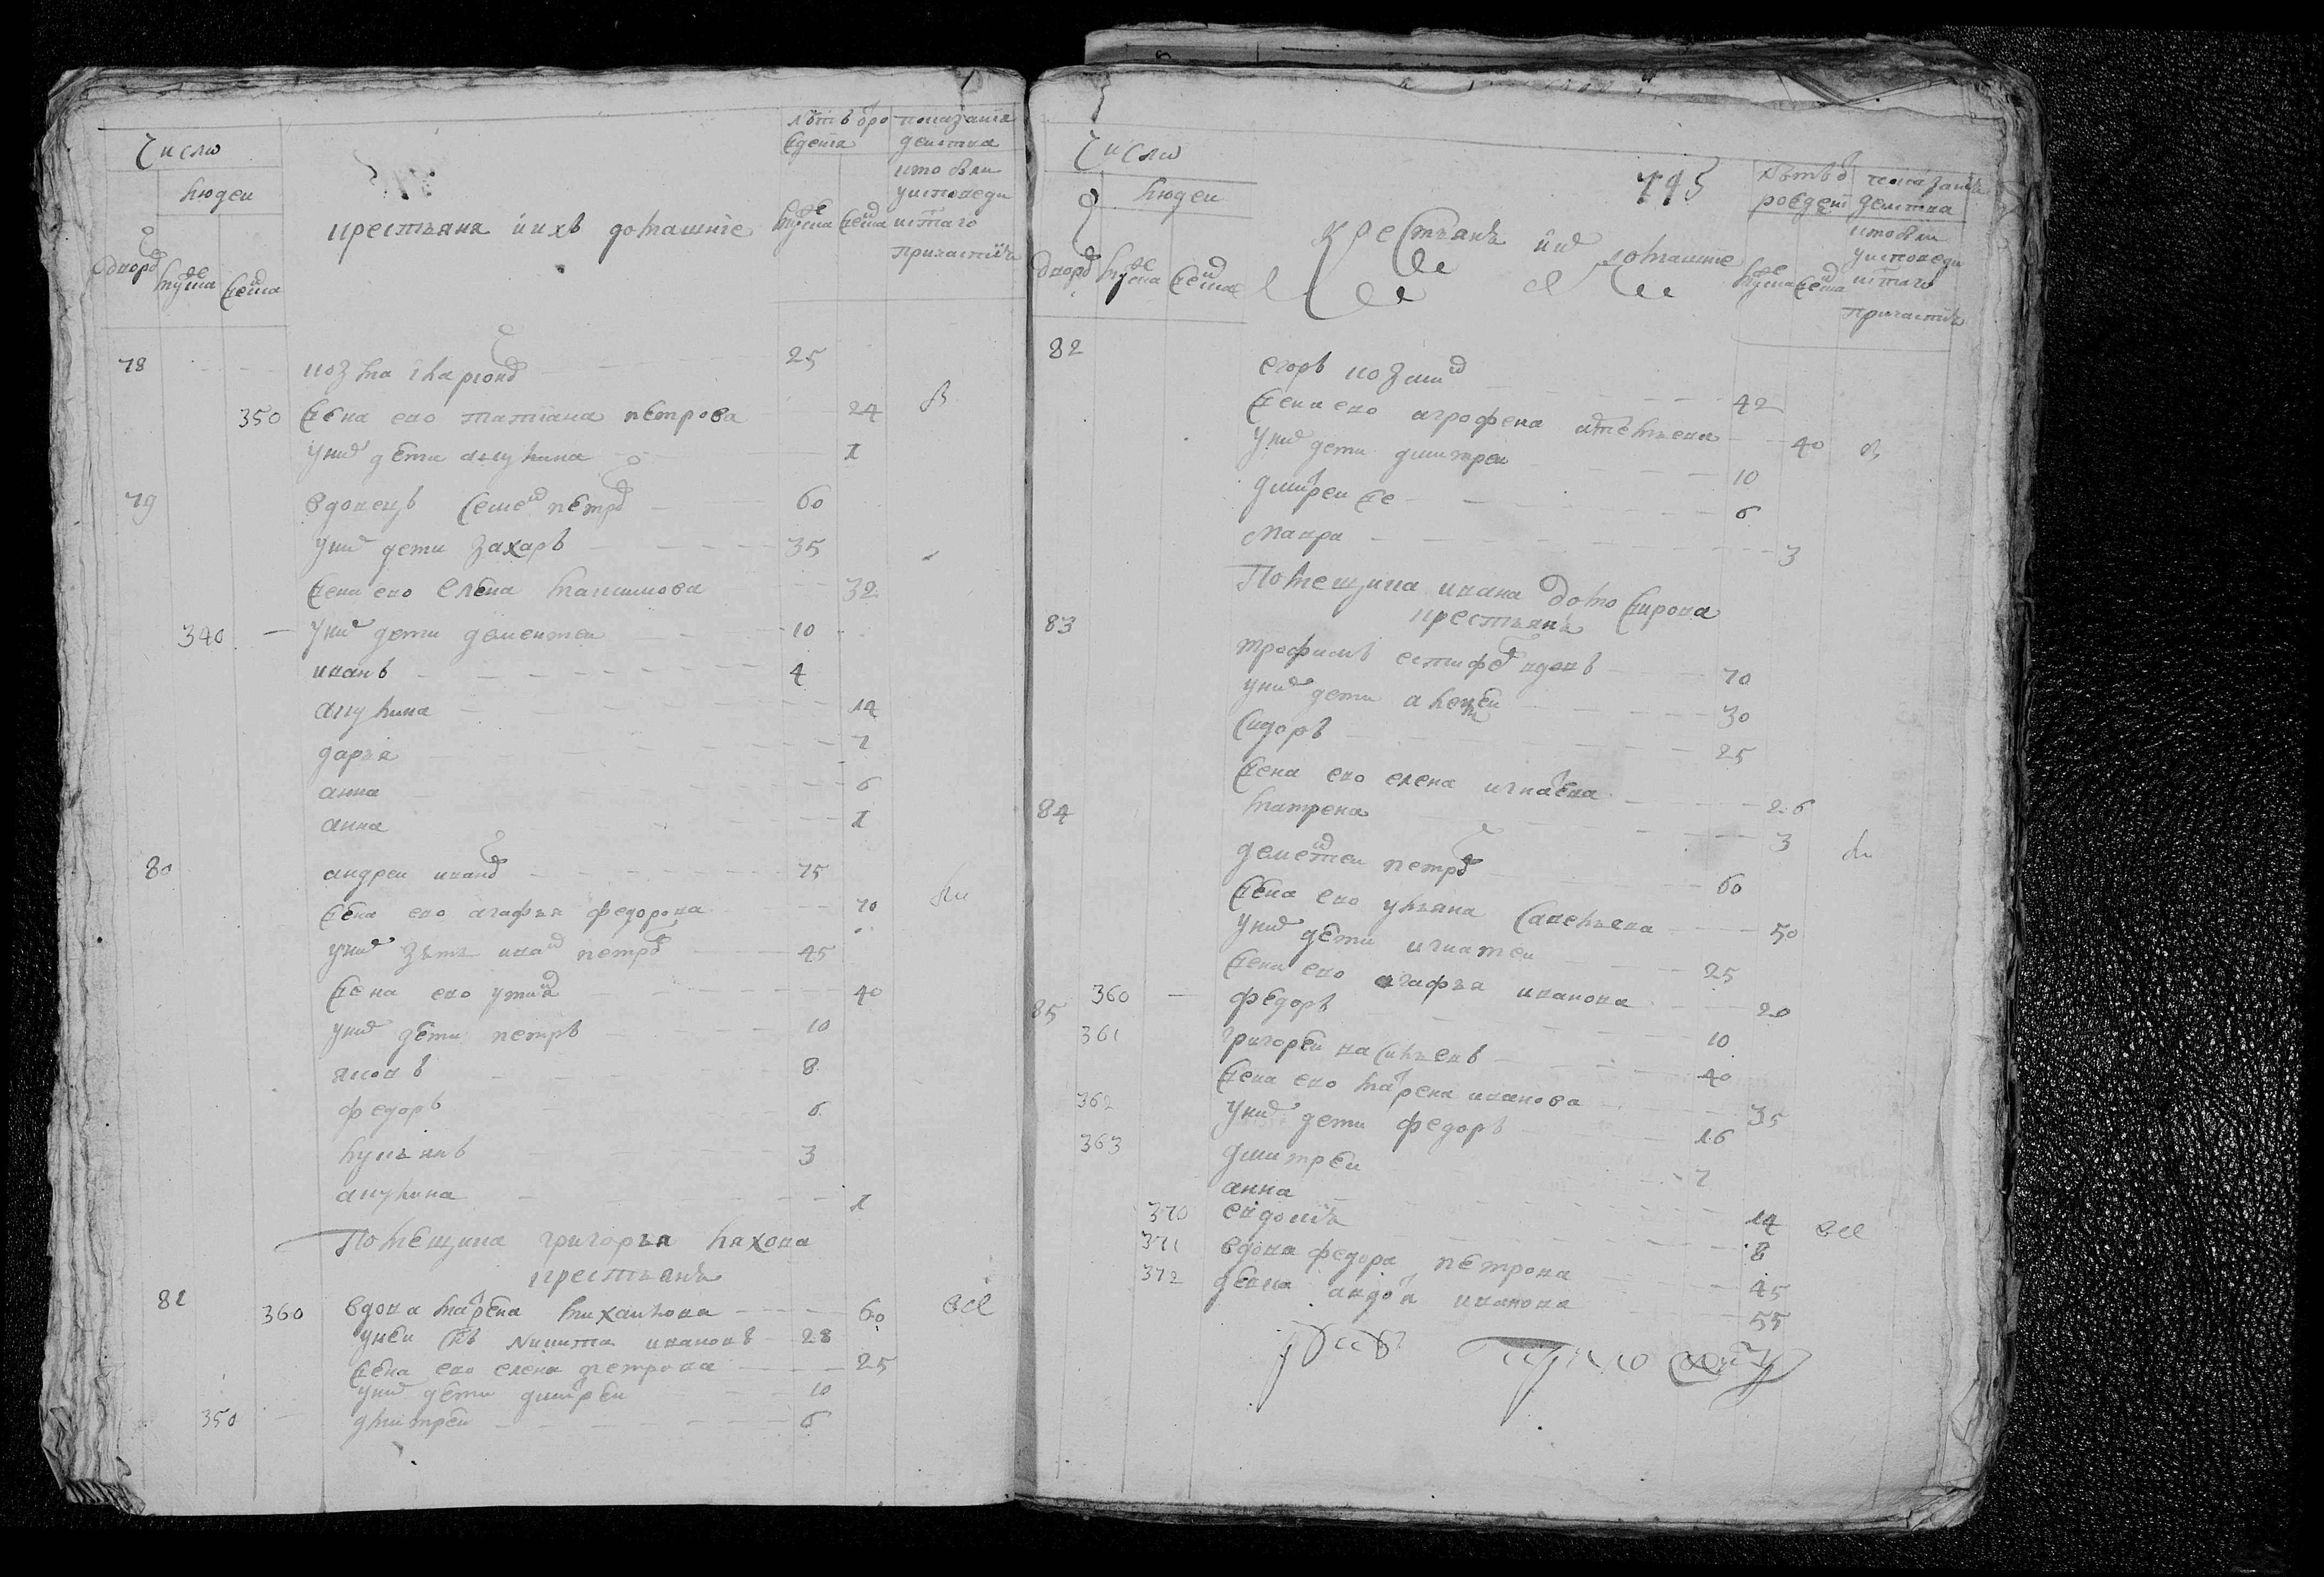 Число
людеи
дворов
мужеска
женска
крестьяня и ихъ домашние
лѣтъ от рождения
мужеска женска
показание
действа
кто были
у исповеди
и с�таго
причастия
78 козма ларионов 25
350 жена ево татиана петрова 24
у них дѣти акулина 1
79 вдовецъ семен петров 60
у них дети захаръ 35
жена ево елена максимова 32
340 у них дети дементеи 10
иванъ 4
акулина 14
даръя 7
анна 6
анна 1
80 андреи иванов 75
жена ево агафья федорова 70
у них зять иван петров 45
жена ево устиния 40
у них дѣти петръ 10
яковъ 8
федоръ 6
лукьянъ 3
акулина 1
Помещика григорья
крестьяня
81 360 вдова матрена михаилова 60 все
у неи снъ никита ивановъ 28
жена ево елена петрова 25
у них дети дмитреи 10
350 дмитреи 6
Число
людеи
дворов мужеска женска
795
крестьянъ и их домашние
лѣтъ от
рождения
мужеска женска
показание
деиства
кто были
у исповеди
и стаго
причастия
82
егоръ козмин 42
жена ево агрофена 40
у них дети дмитреи 10
дмитреи же 6
мавра 3
Помещика ивана доможирова
крестьяня
83
трофимъ естифеевъ 70
у них дети алексеи 30
сидоръ 25
жена ево елена игнатева 26
матрена 3
84
дементеи петров 60
жена ево ульяна савельева 50
у них дѣти игнатеи 25
жена ево агафья иванова 20
360 федоръ 10
85
361 григореи васильевъ 40
жена ево матрена иванова 35
362 у них дети федоръ 16
363 дмитреи 7
анна 14
370 евдокия 8 все
371 вдова федора петрова 45
372 девка авдотя иванова 55